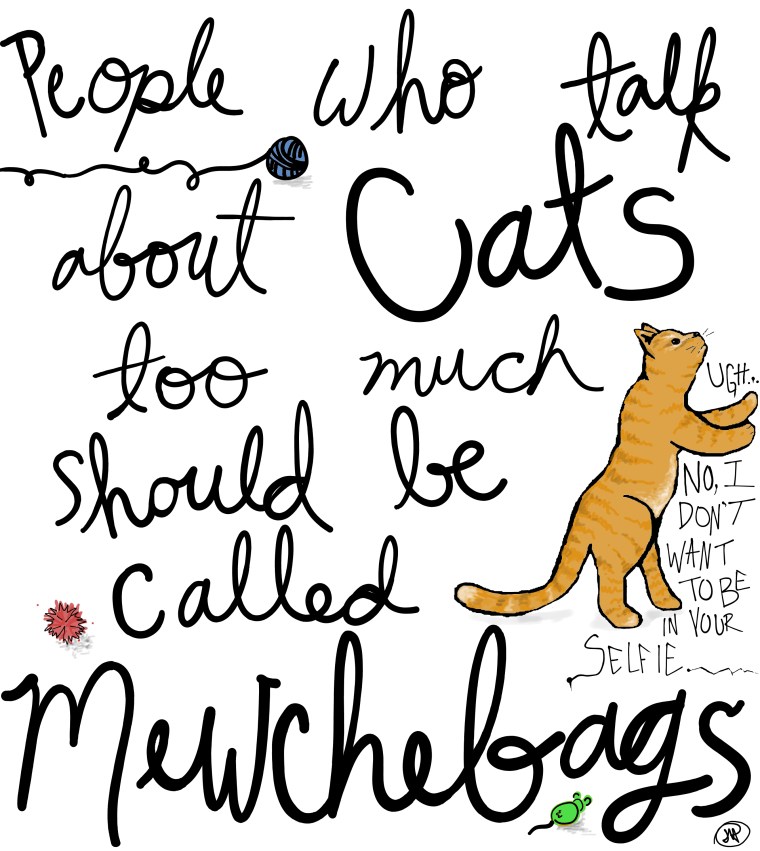 People who talk
about Cats
too much
should be
called
Mewchebags
UGH...
NO, I
DON'T
WANT
TO BE
IN YOUR
SELFIE.